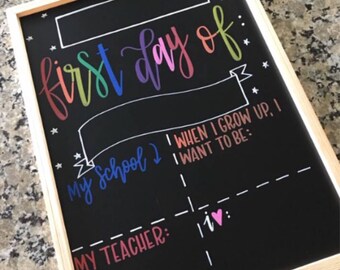 first day of:
My School
WHEN I GROW UP, I
WANT TO BE:
MY TEACHER:
i ♥: